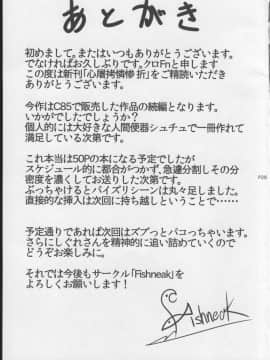 あとがき
初めまして。またはいつもありがとうございます。
でなければお久しぶりです。クロFnと申します
この度は新刊「心層拷憐惨折」をご精読いただき
ありがとうございます。
今作はC85で販売した作品の続編となります。
いかがでしたでしょうか？
個人的には大好きな人間便器シュチュで一冊作れて
満足している次第です。
これ本当は50Pの本になる予定でしたが
スケジュール的に都合がつかず、急遽分割してその分
密度を濃くしてお送りした次第です。
ぶっちゃけるとパイズリシーンは丸々足しました。
直接的な挿入は次回に持ち越しということで・・・・
予定通りであれば次回はズブっとパコっちゃいます。
さらにしぐれさんを精神的に追い詰めていくので
どうぞお楽しみに。
それでは今後もサークル「Fishneak」を
よろしくお願いします！
Fishneak